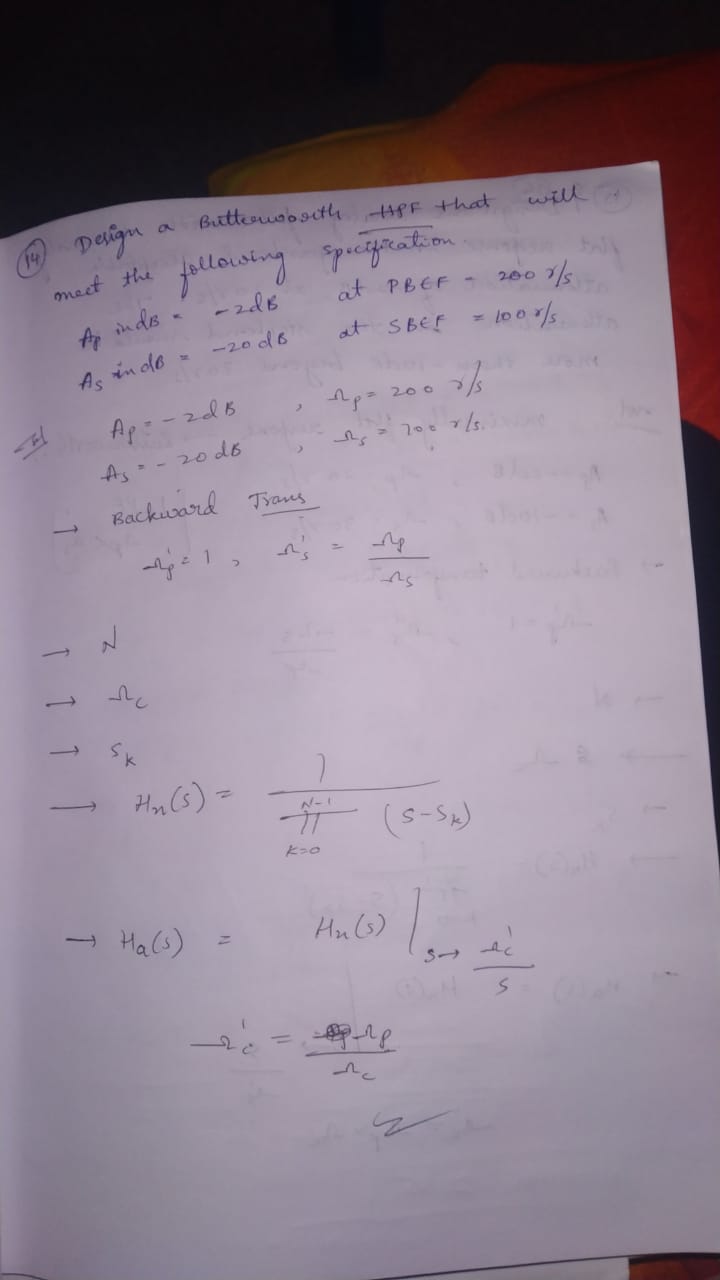 (14) Design a Butterworth HPF that will
meet the following specification
Ap in dB = -2dB at PBEF = 200 r/s
As in dB = -20 dB at SBEF = 100 r/s
Ap = -2dB , Ωp = 200 r/s
As = -20 dB , Ωs = 100 r/s.
→ Backward Trans
Ωp' = 1 , Ωs' = Ωp / Ωs
→ N
→ Ωc
→ Sk
→ Hn(s) = 1 / ∏ k=0 N-1 (s-sk)
→ Ha(s) = Hn(s) | s→ Ωc' / s
Ωc' = Ωp / Ωc